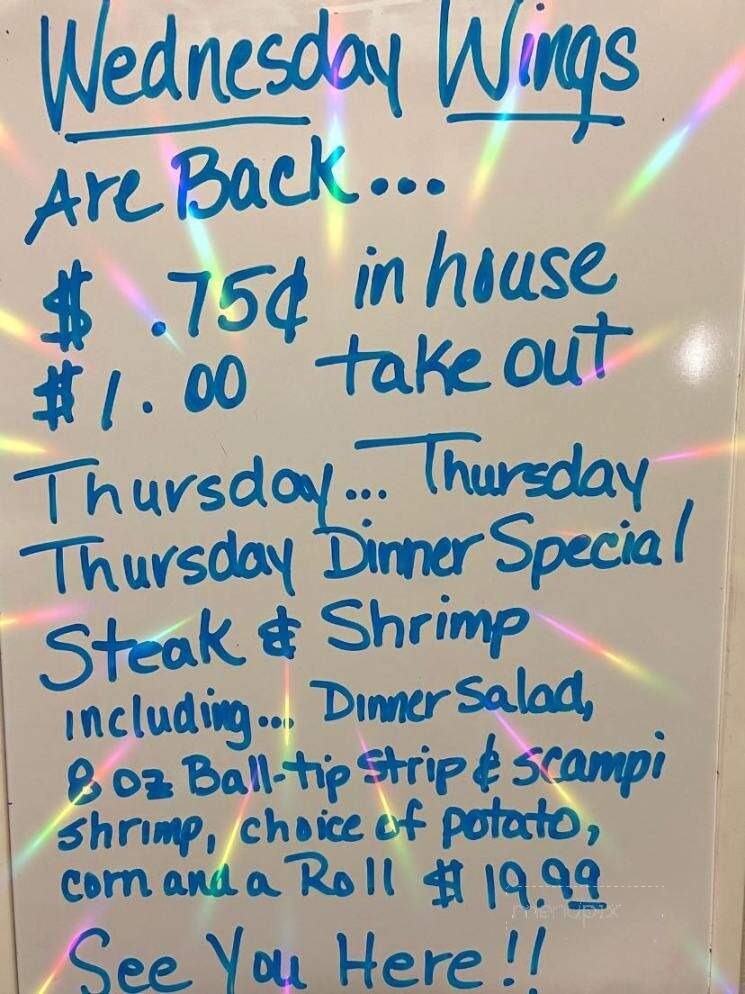 Wednesday Wings
Are Back...
$ .75¢ in house
$1.00 take out
Thursday... Thursday
Thursday Dinner Special
Steak & Shrimp
including... Dinner Salad,
8 oz Ball-tip strip & scampi
shrimp, choice of potato,
corn and a Roll $19.99
menupix
See You Here!!